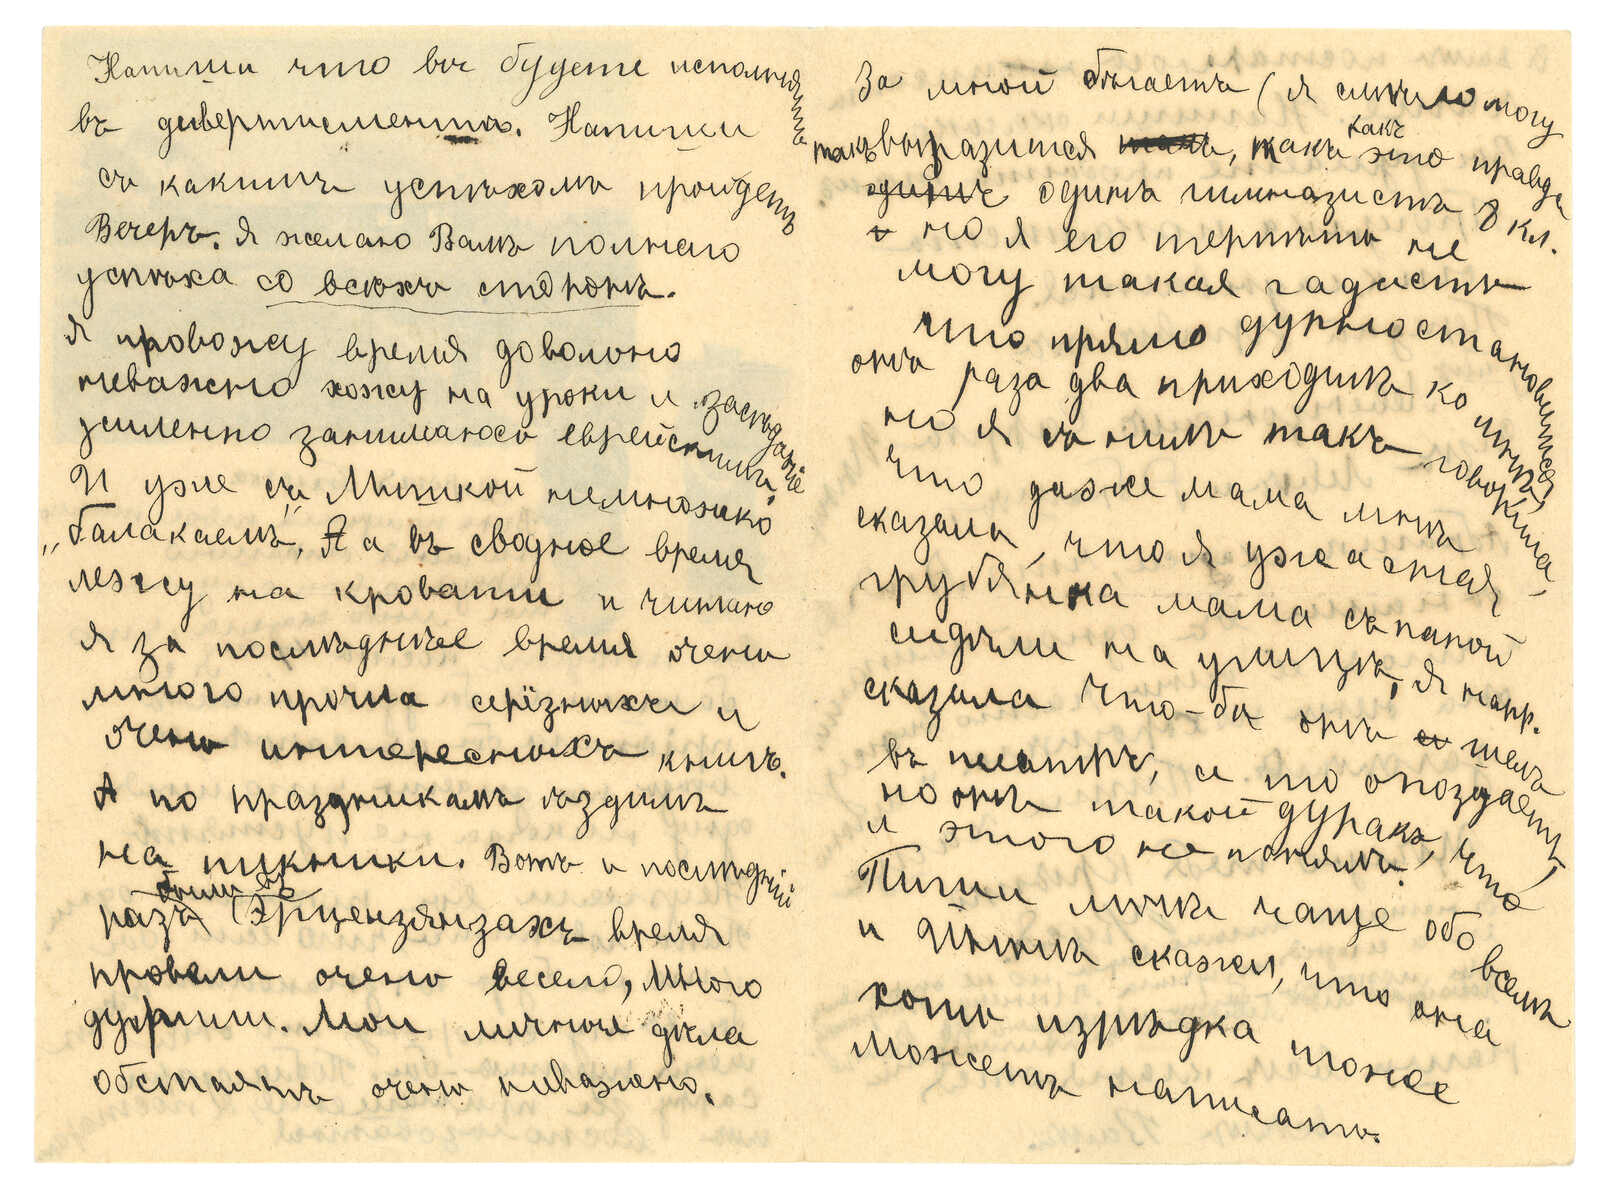 Напиши что вы будете исполнять
въ дивертисментѣ. Напиши
съ какимъ успѣхомъ пройдетъ
Вечеръ. Я желаю Вамъ полнаго
успѣха со всѣхъ сторонъ.
Я провожу время довольно
неважно хожу на уроки и засѣданіе
усиленно занимаюсь еврейскимъ,
И уже съ Митькой немножко
„балакаемъ“, А а въ сводное время
лежу на кровати и читаю
я за послѣднѣе время очень
много прочла серіозныхъ и
очень интересныхъ книгъ.
А по праздникамъ ѣздимъ
на пикники. Вотъ и послѣдній
разъ были въ Эрценздянзахъ время
провели очень весело, много
дурили. Мои личные дѣла
обстоятъ очень неважно.
За мной бѣгаетъ (я смѣло могу
такъ выразится, такъ какъ это правда
одинъ гимназистъ 8 кл.
но я его терпѣть не
могу такая гадость
что прямо дурно становится,
онъ раза два приходилъ ко мнѣ,
но я съ нимъ такъ говорила,
что даже мама мнѣ
сказала, что я ужасная
грубянка мама съ папой
сидѣли на улицѣ, я напр.
сказала что-бы онъ шелъ
въ театръ, а то опоздаетъ,
но онъ такой дуракъ, что
и этого не понялъ.
Пиши мнѣ чаще обо всемъ
и скажи, что она
хоть изрѣдка тоже
можетъ написать.